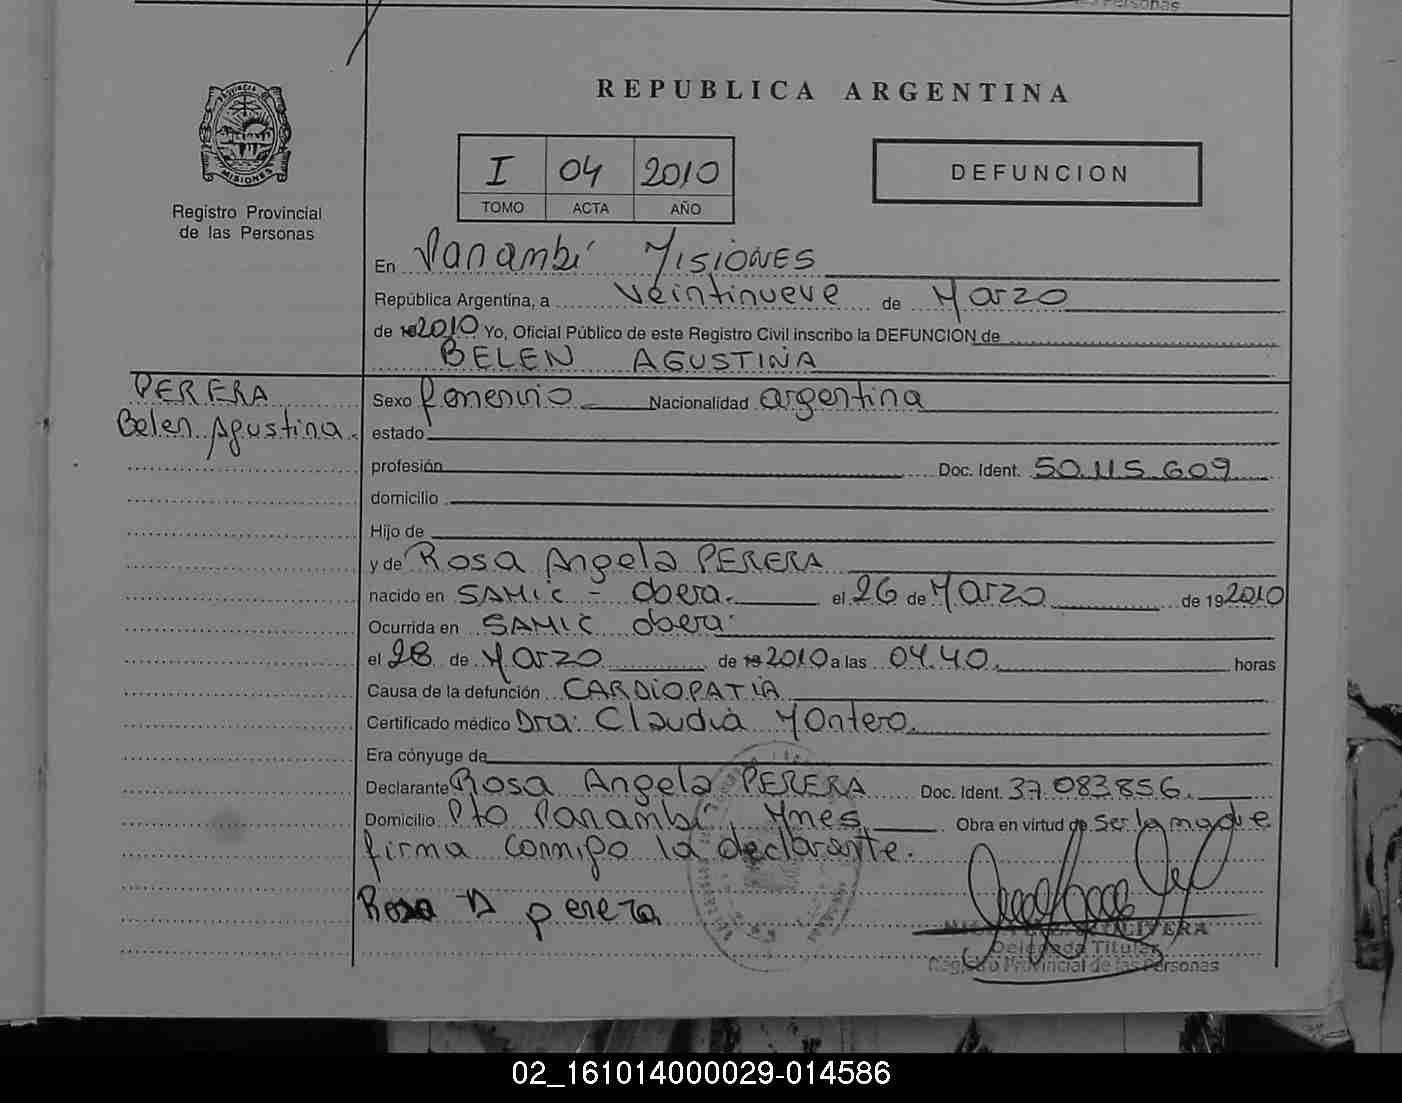 REPUBLICA ARGENTINA
PROVINCIA DE
MISIONES
Registro Provincial
de las Personas
I 04 2010
TOMO ACTA AÑO
DEFUNCION
En Panambí Misiones
República Argentina, a Veintinueve de Marzo
de 19 2010 Yo, Oficial Público de este Registro Civil inscribo la DEFUNCION de
BELEN AGUSTINA
PERERA
Belen Agustina.
Sexo femenino Nacionalidad argentina
estado
profesión Doc. Ident. 50.115.609
domicilio
Hijo de
y de Rosa Angela PERERA
nacido en SAMIC - Obera. el 26 de Marzo de 19 2010
Ocurrida en SAMIC Obera.
el 28 de Marzo de 19 2010 a las 04.40. horas
Causa de la defunción CARDIOPATIA
Certificado médico Dra: Claudia Montero.
Era cónyuge de
Declarante Rosa Angela PERERA Doc. Ident. 37.083.856.
Domicilio Pto Panambí, Mnes. Obra en virtud de ser la madre
firma conmigo la declarante.
Rosa A perera
Delegada Titular
Registro Provincial de las Personas
02_161014000029-014586